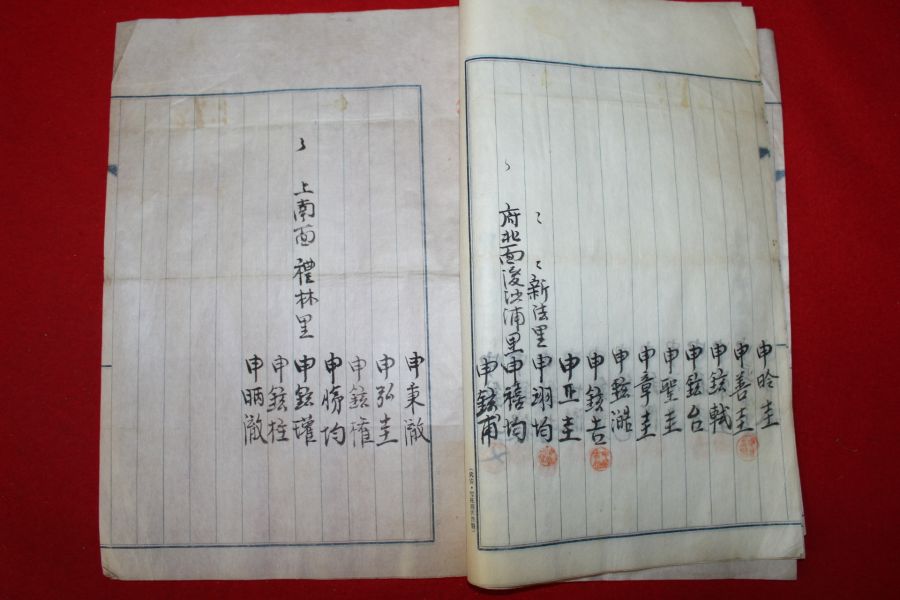 申昤圭
申善圭
申鉉軾
申鉉台
申聖圭
申章圭
申鉉澔
申鉉吉
申正圭
〻 〻 新法里 申翊均
府北面後沙浦里 申禧均
申鉉甯
申秉澈
申弘圭
申鉉權
申均
上南面 禮林里 申鉉瓘
申鉉柱
申昞澈